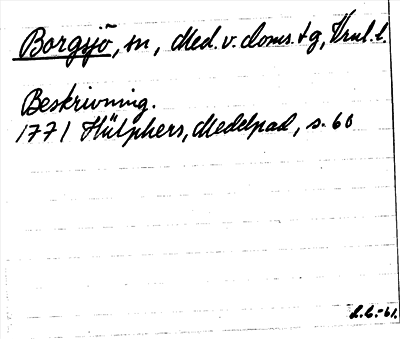 Borgsjö, sn, Med. v. doms. tg, Vrnl. l.
Beskrivning.
1771 Hülphers, Medelpad, s. 60